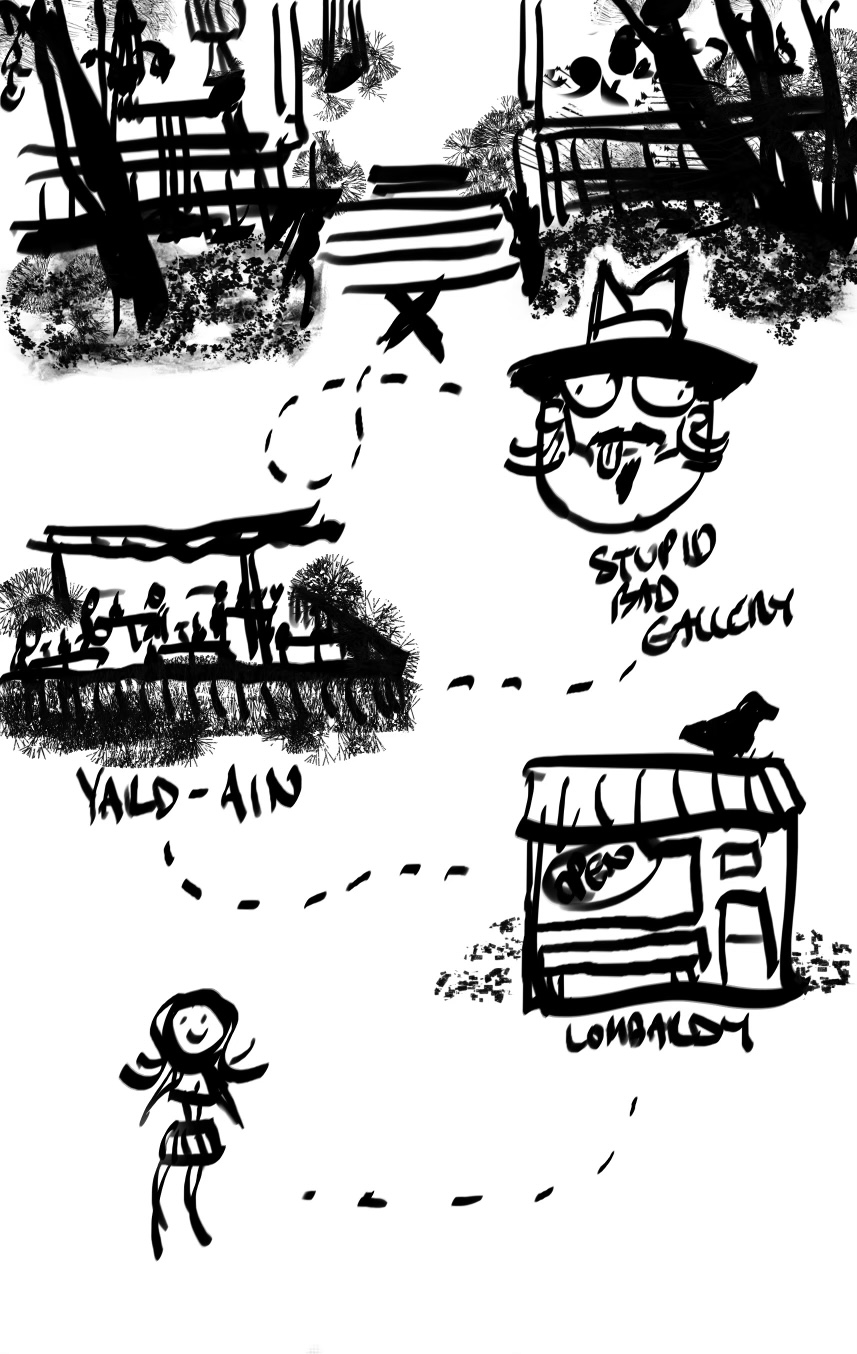 STUPID
BAD
GALLERY
YARD-AIN
OPEN
LOMBARDY